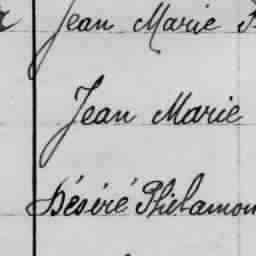 Jean Marie
Jean Marie
Désiré Philamon